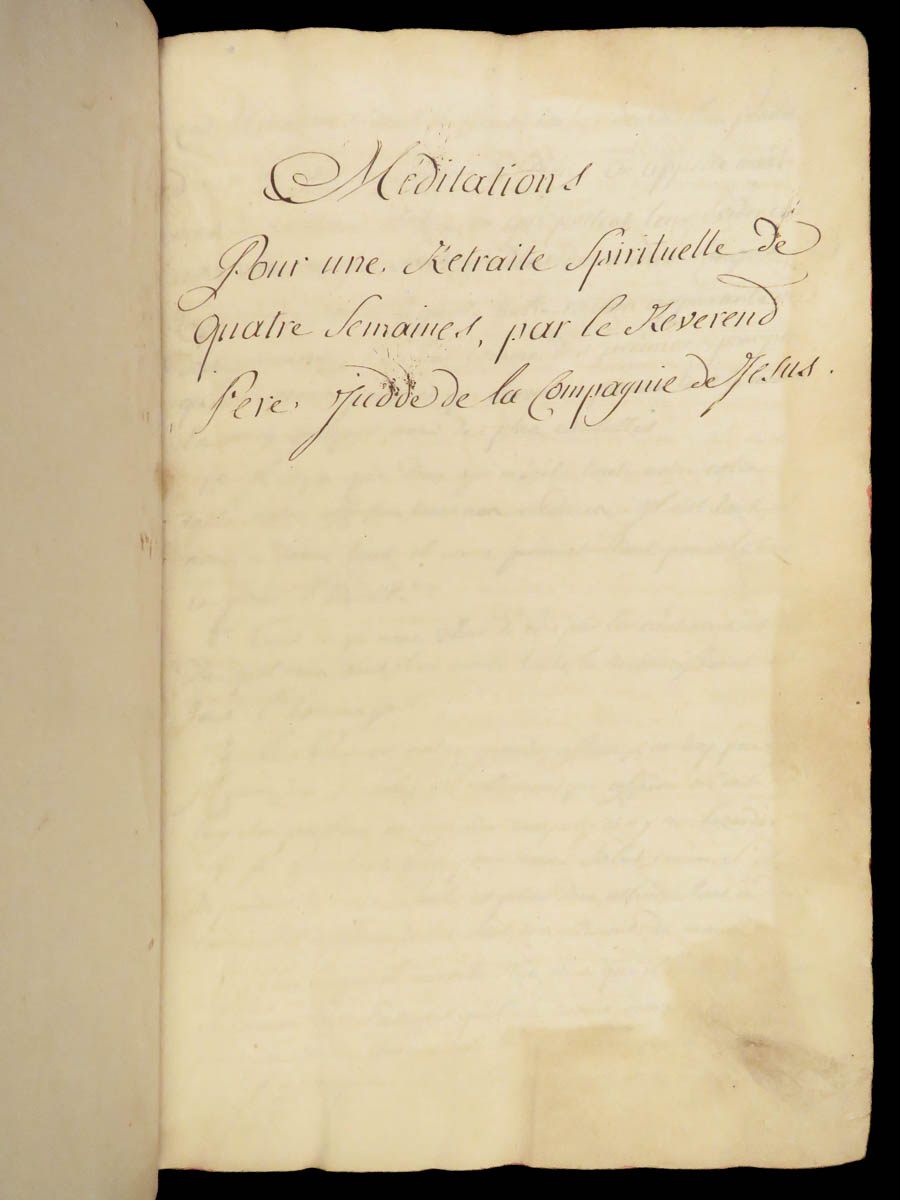 Meditations
Pour une Retraite Spirituelle de
quatre Semaines, par le Reverend
Pere Judde de la Compagnie de Jesus.